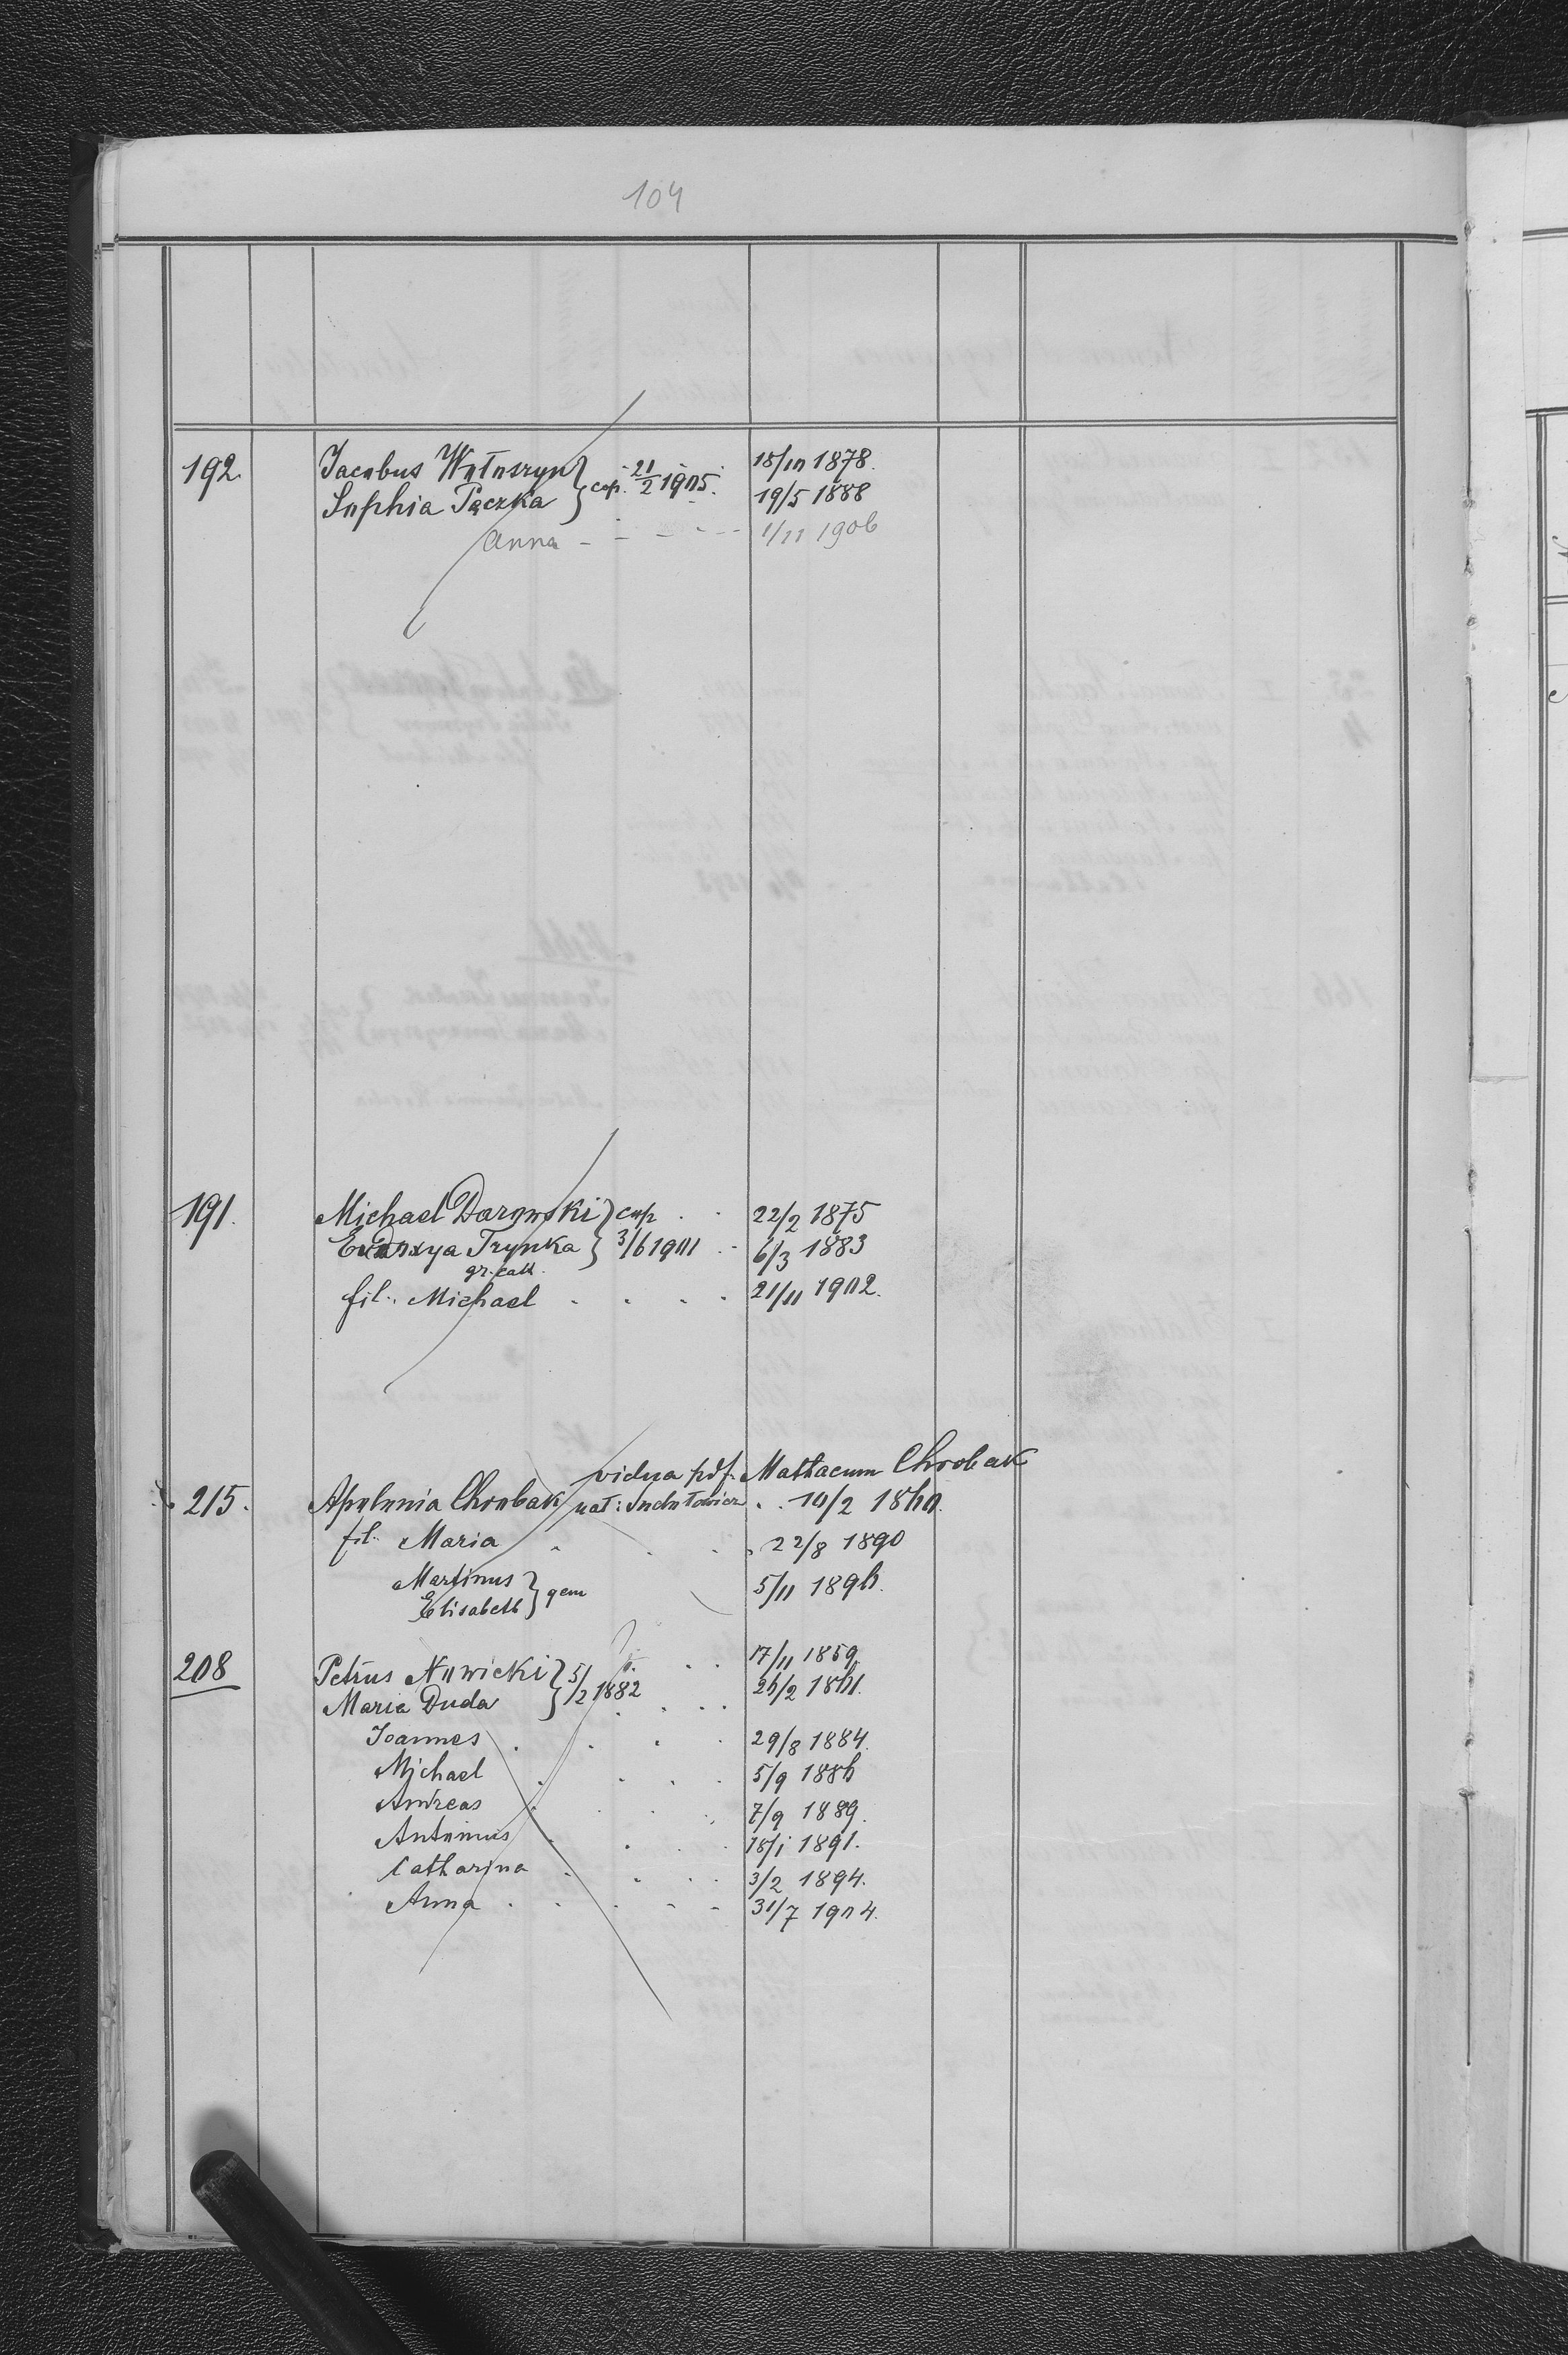 104
192. Jacobus Wołoszyn } cop. 21/2 1905. 18/10 1878.
Sophia Pączka 19/5 1888
Anna - - - - - 1/11 1906
191. Michael Darowski } cop . . 22/2 1875
Eudoxya Trynka } 3/6 1901 . - 6/3 1883
gr. cath.
fil. Michael . . . . 21/11 1902.
vidua pdf. Mathaeum Chrobak
215. Apolonia Chrobak nat: . . 10/2 1860.
fil. Maria . . . . 22/8 1890
Martinus } gem 5/11 1896.
Elisabeth
208 Petrus Nowicki } 5/2 1882 . . 17/11 1859
Maria Duda . . . . 26/2 1861.
Joannes . . . . 29/8 1884.
Michael . . . . 5/9 1886
Andreas . . . . 7/9 1889.
Antonius . . . . 18/1 1891.
Catharina . . . . 3/2 1894.
Anna . . . - - 31/7 1904.